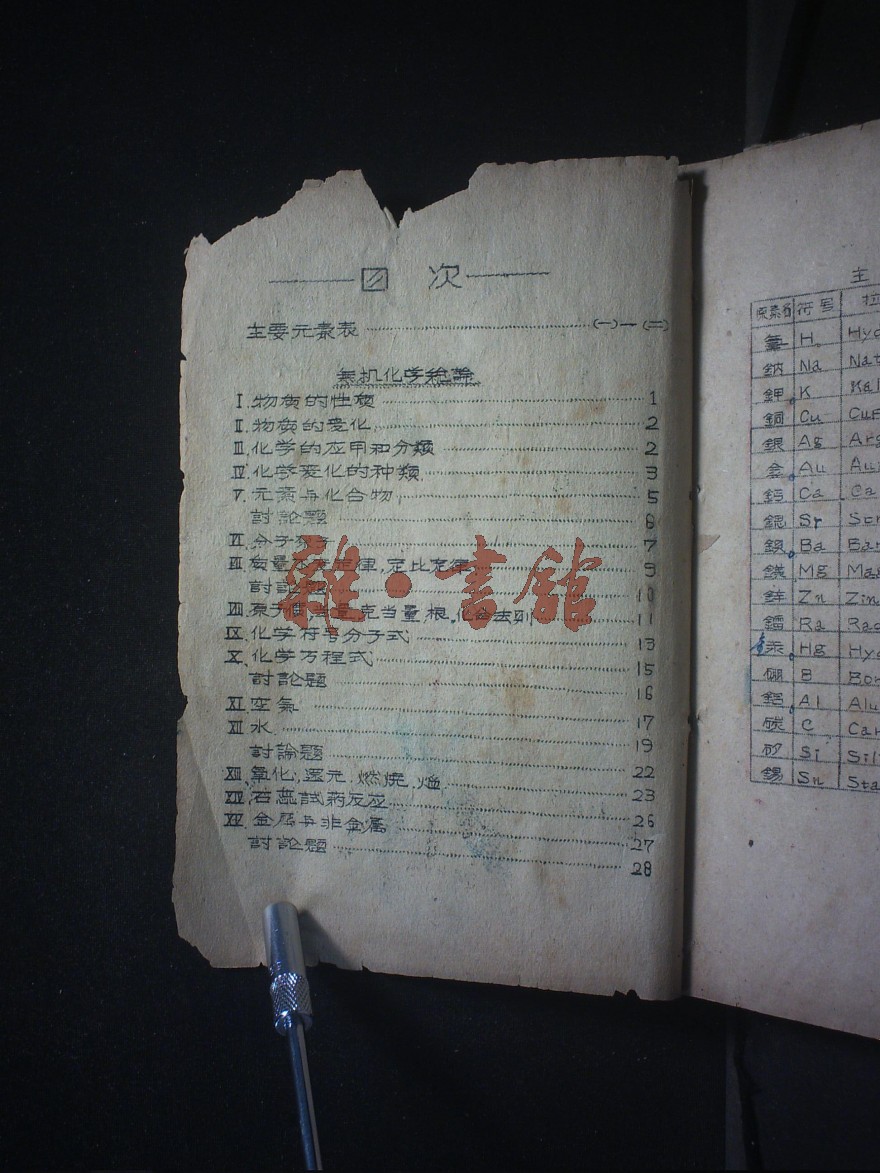 目 次
主要元素表 (一)—(二)
無机化学總論
I. 物质的性质 1
II. 物质的变化 2
III. 化学的应用和分類 2
IV. 化学变化的种類 3
V. 元素与化合物 5
討論題 6
VI. 分子原子 7
VII. 质量不变定律,定比定律 9
討論題 10
VIII. 克当量,根,化合法则 11
IX. 化学符号分子式 13
X. 化学方程式 15
討論題 16
XI. 空氣 17
XII. 水 19
討論題 22
XIII. 氧化,还元,燃燒,焰 23
XIV. 石蕊試药反应 26
XV. 金属与非金属 27
討論題 28
雜·書舘
主
符号 拉
H Hyd
鈉 Na Nat
鉀 K Kal
銅 Cu Cup
銀 Ag Arg
金 Au Au
鈣 Ca Ca
鍶 Sr
鋇 Ba Bar
鎂 Mg Mag
鋅 Zn Zin
鐳 Ra Rad
汞 Hg Hyd
硼 B Bor
鋁 Al Alu
碳 C Car
矽 Si Sil
錫 Sn Sta